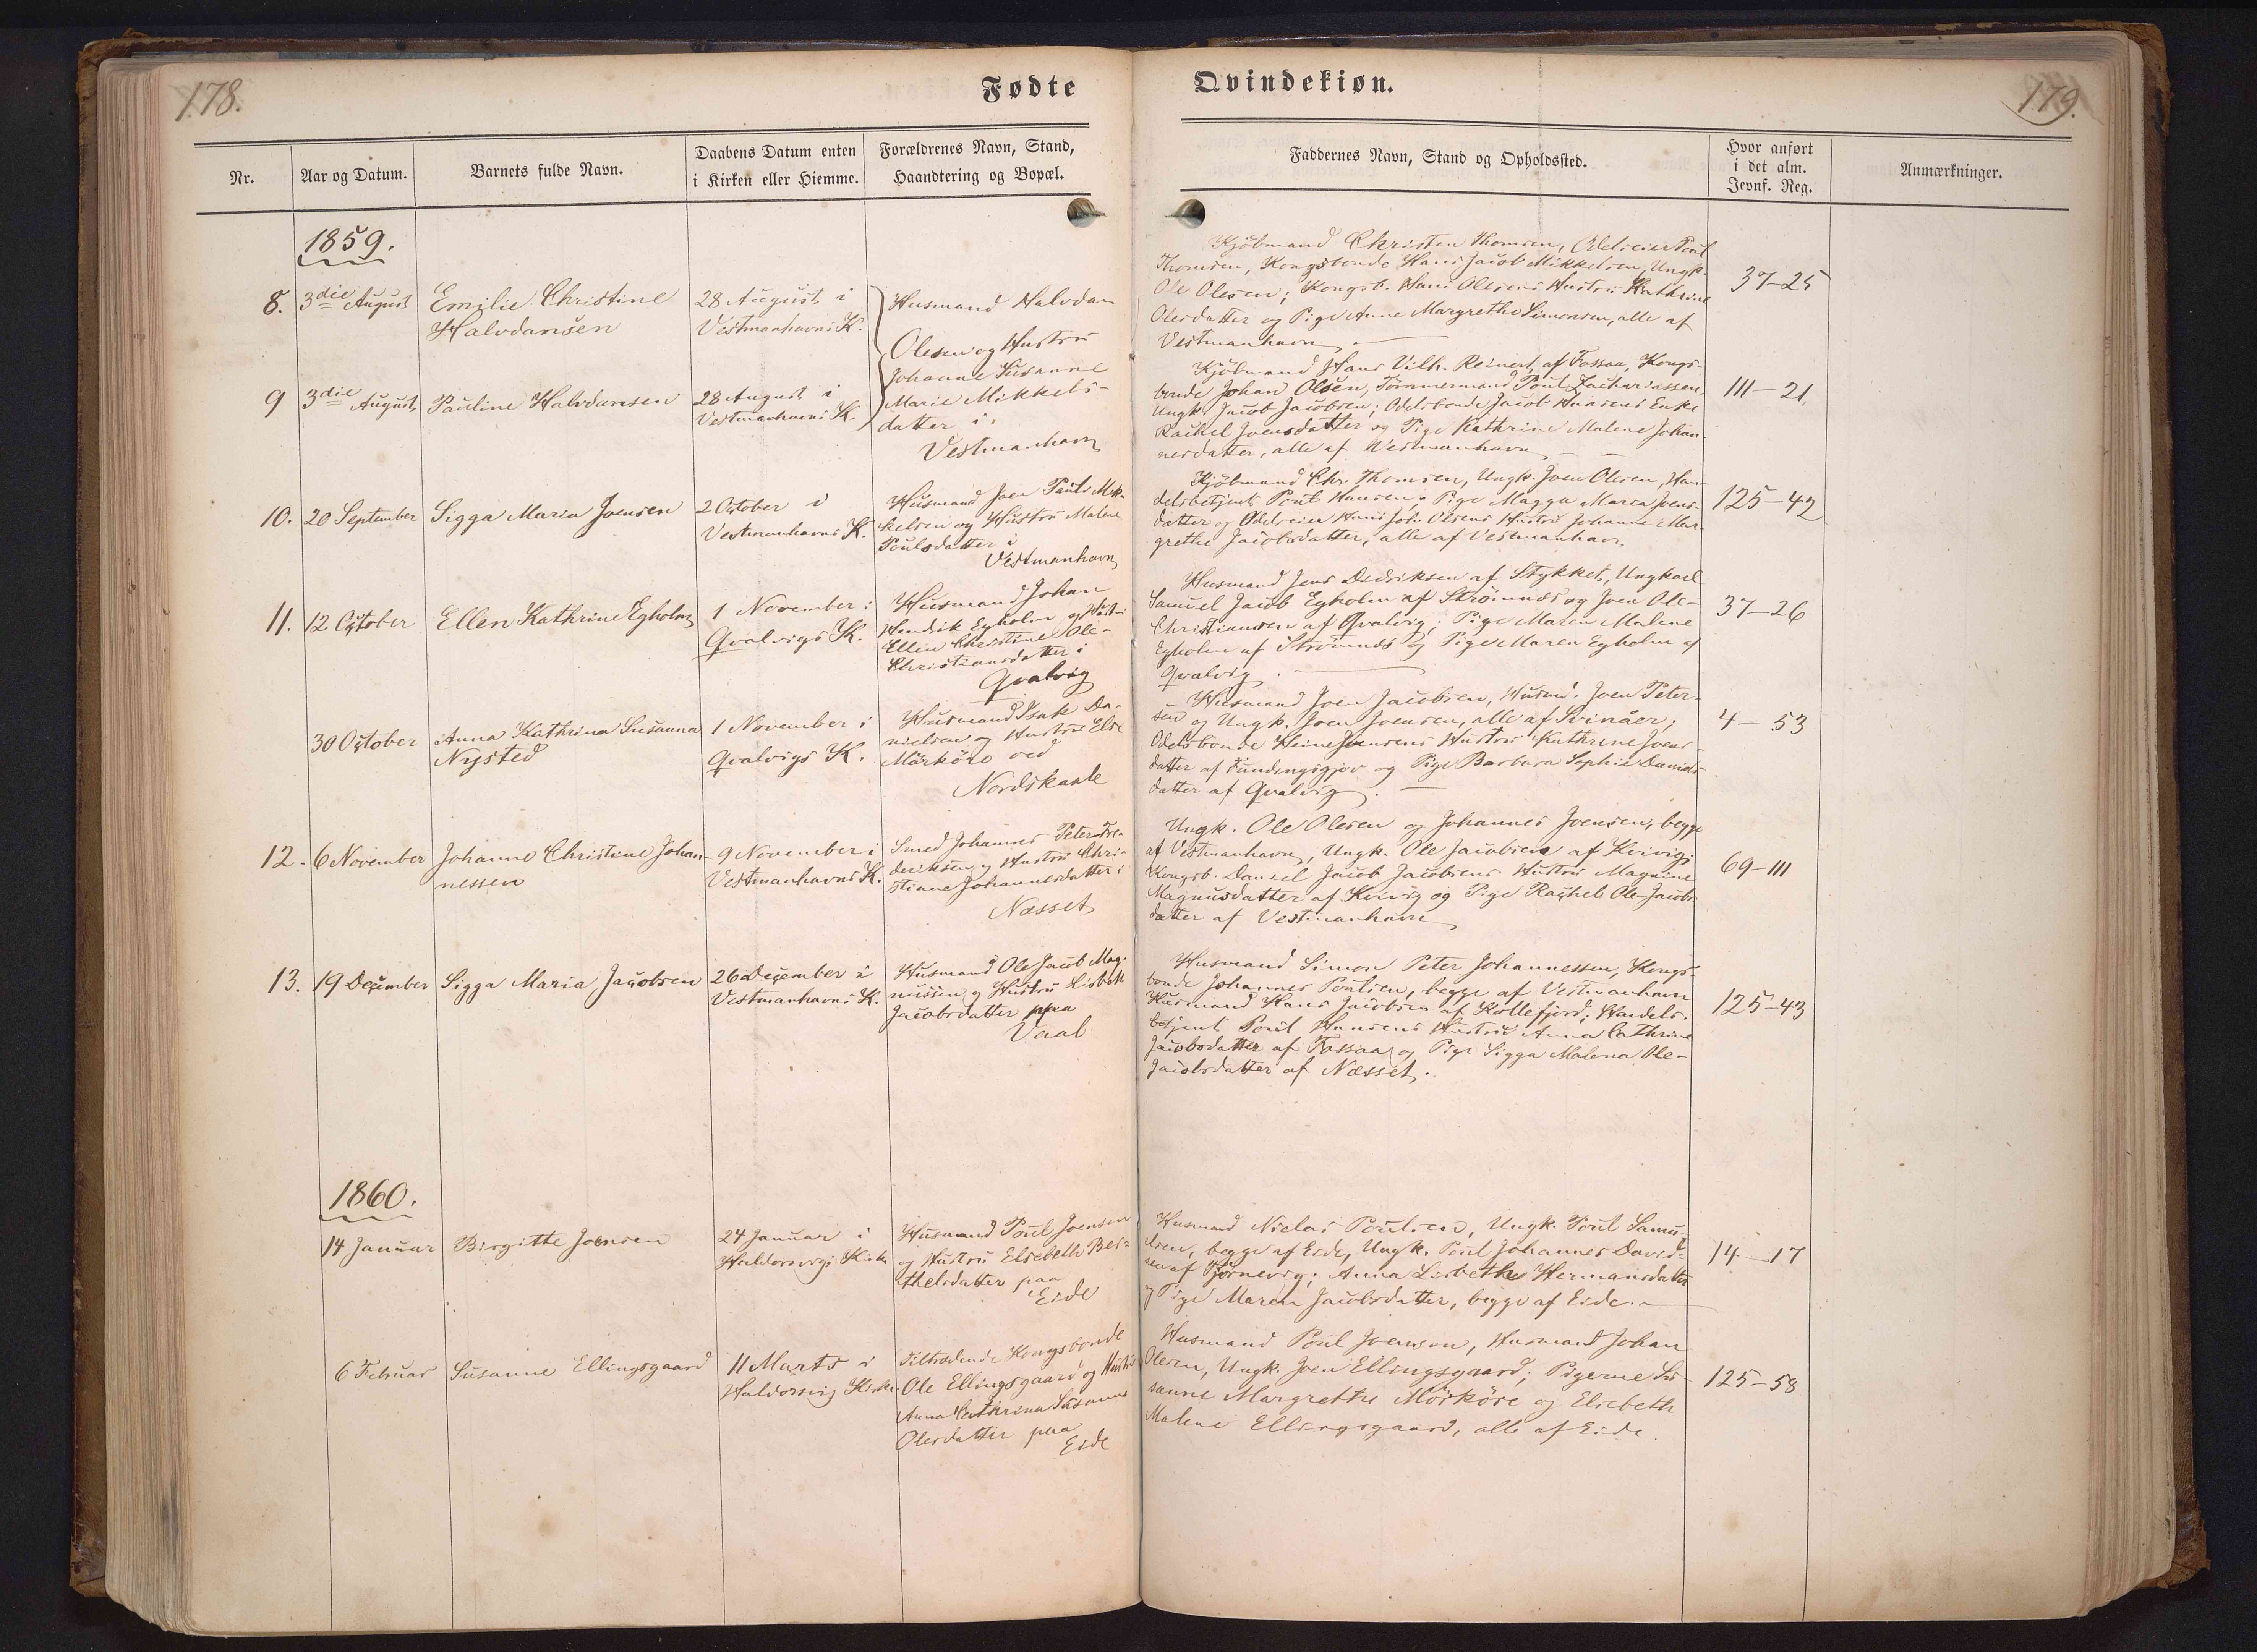 178.
Fødte
Qvindekiøn.
179.
Nr.
Aar og Datum.
Barnets fulde Navn.
Daabens Datum enten
i Kirken eller Hiemme.
Forældrenes Navn, Stand,
Haandtering og Bopæl.
Faddernes Navn, Stand og Opholdssted.
Hvor anført
i det alm.
Jevnf. Reg.
Anmærkninger.
1859.
8.
3die August
Emilie Christine
Halvdansen
28 August i
Vestmanhavns K.
Husmand Halvdan
Olesen og Hustru
Johanne Susanne
Marie Mikkels-
datter i
Vestmanhavn
Kjöbmand Christen Thomsen, Odelseier Poul
Thomsen, Kongsbonde Hans Jacob Mikkelsen, Ungk.
Ole Olesen; Kongsb. Hans Olesens Hustru Kathrine
Olesdatter og Pige Anne Margrethe Simonsen, alle af
Vestmanhavn
37-25
9
3die August
Pauline Halvdansen
28 August i
Vestmanhavns K.
Kjöbmand Hans Vilh. Reinert af Fossaa, Kongs-
bonde Johan Olsen, Tömmermand Poul Zachariassen,
Ungk. Jacob Jacobsen; Odelsbonde Jacob Hansens Enke
Rachel Joensdatter og Pige Kathrine Malene Johan-
nesdatter, alle af Vestmanhavn
111-21
10.
20 September
Sigga Maria Joensen
2 October i
Vestmanhavns K.
Husmand Joen Pauli Mik-
kelsen og Hustru Malene
Poulsdatter i
Vestmanhavn
Kjöbmand Chr. Thomsen, Ungk. Joen Olesen, Han-
delsbetjent Poul Hansen; Pige Magga Maria Joens-
datter og Odelseier Hans Joh. Olsens Hustru Johanne Mar-
grethe Jacobsdatter, alle af Vestmanhavn
125-42
11.
12 October
Ellen Kathrine Egholm
1 November i
Qvalvigs K.
Husmand Johan
Hendrik Egholm og Hustru
Ellen Christine Ole-
Christiansdatter i
Qvalvig
Husmand Jens Didriksen af Stykket, Ungkarl
Samuel Jacob Egholm af Strömnæs og Joen Ole-
Christiansen af Qvalvig; Pige Maren Malene
Egholm af Strömnæs og Pige Maren Egholm af
Qvalvig.
37-26
30 October
Anna Kathrina Susanna
Nysted
1 November i
Qvalvigs K.
Husmand Isak Da-
nielsen og Hustru Else
Mörköre ved
Nordskaale
Husmand Joen Jacobsen, Husmd. Joen Peter-
sen og Ungk. Joen Joensen, alle af Svinåer;
Odelsbonde Heine Joensens Hustru Kathrine Joens-
datter af Fundingsgjov og Pige Barbara Sophie Daniels-
datter af Qvalvig.
4-53
12.
6 November
Johanne Christine Johan-
nessen
9 November i
Vestmanhavns K.
Smed Johannes Peter Die-
deriksen og Hustru Chri-
stiane Johannesdatter i
Næsset
Ungk. Ole Olesen og Johannes Joensen, begge
af Vestmanhavn, Ungk. Ole Jacobsen af Kvivig;
Kongsb. Daniel Jacob Jacobsens Hustru Magnine
Magnusdatter af Kvivig og Pige Rachel Ole-Jacobs-
datter af Vestmanhavn
69-111
13.
19 December
Sigga Maria Jacobsen
26 December i
Vestmanhavns K.
Husmand Ole Jacob Mag-
nussen og Hustru Lisbeth
Jacobsdatter paa
Vaal
Husmand Simon Peter Johannessen, Kongs-
bonde Johannes Poulsen, begge af Vestmanhavn
Husmand Hans Jacobsen af Kollefjord; Handels-
betjent Poul Hansens Hustru Anna Cathrine
Jacobsdatter af Fossaa og Pige Sigga Malena Ole-
Jacobsdatter af Næsset.
125-43
1860.
14 Januar
Birgitte Joensen
24 Januar i
Haldorsvigs Kirke
Husmand Poul Joensen
og Hustru Elsebeth Ber-
thelsdatter paa
Eide
Husmand Niclas Poulsen, Ungk. Poul Samu-
elsen, begge af Eide, Ungk. Poul Johannes David-
sen af Tjörnevig; Anna Lisbeth Hermansdatter
og Pige Maren Jacobsdatter, begge af Eide.
14-17
6 Februar
Susanne Ellingsgaard
11 Marts i
Haldorsvig Kirke
Tiltrædende Kongsbonde
Ole Ellingsgaard og Hustru
Anna Cathrina Susanne
Olesdatter paa
Eide
Husmand Poul Joensen, Husmand Johan
Olesen, Ungk. Joen Ellingsgaard; Pigerne Su-
sanne Margrethe Mörköre og Elsebeth
Malene Ellingsgaard, alle af Eide.
125-58